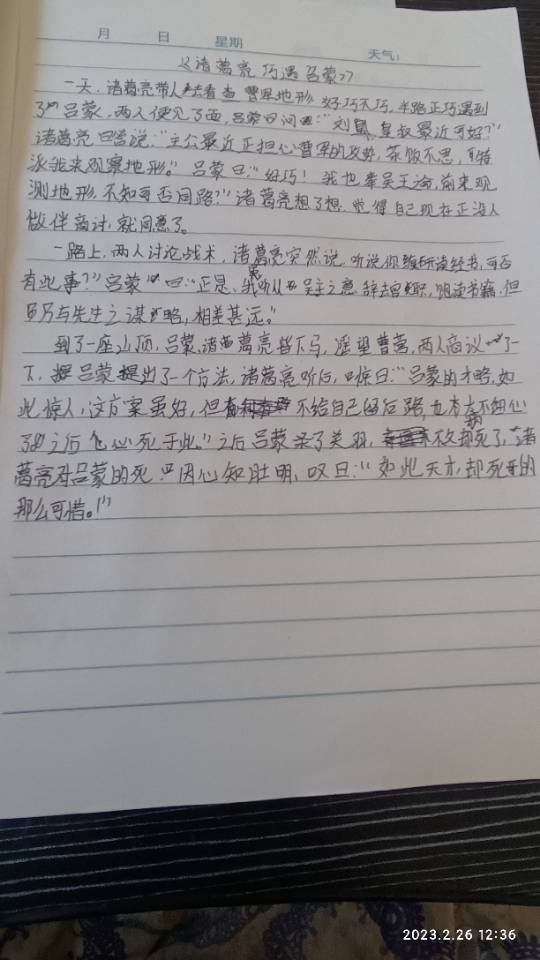 月 日 星期 天气:
《诸葛亮巧遇吕蒙》
一天,诸葛亮带人去看查曹军地形,好巧不巧,半路正巧遇到
了吕蒙,两人便见了面,吕蒙曰问:“刘皇叔最近可好?”
诸葛亮回答说:“主公最近正担心曹军的攻势,茶饭不思,特
派我来观察地形。”吕蒙曰:“好巧!我也奉吴王谕,前来观
测地形,不知可否同路?”诸葛亮想了想,觉得自己现在正没人
做伴商讨,就同意了。
一路上,两人讨论战术,诸葛亮突然说,听说你研读经书,可否
有此事?”吕蒙曰:“正是,我听从吴主之意,辞去官职,阅读书籍,但
与先生之谋略,相差甚远。”
到了一座山顶,吕蒙,诸葛亮皆下马,遥望曹营,两人商议了一
下,吕蒙提出了一个方法,诸葛亮听后,惊曰:“吕蒙的才略,如
此惊人,这方案虽好,但不给自己留后路,也有点不细心
了,之后他必死于此。”之后吕蒙杀了关羽,不久却病死了,诸
葛亮对吕蒙的死因心知肚明,叹曰:“如此天才,却死的
那么可惜。!”
2023.2.26 12:36